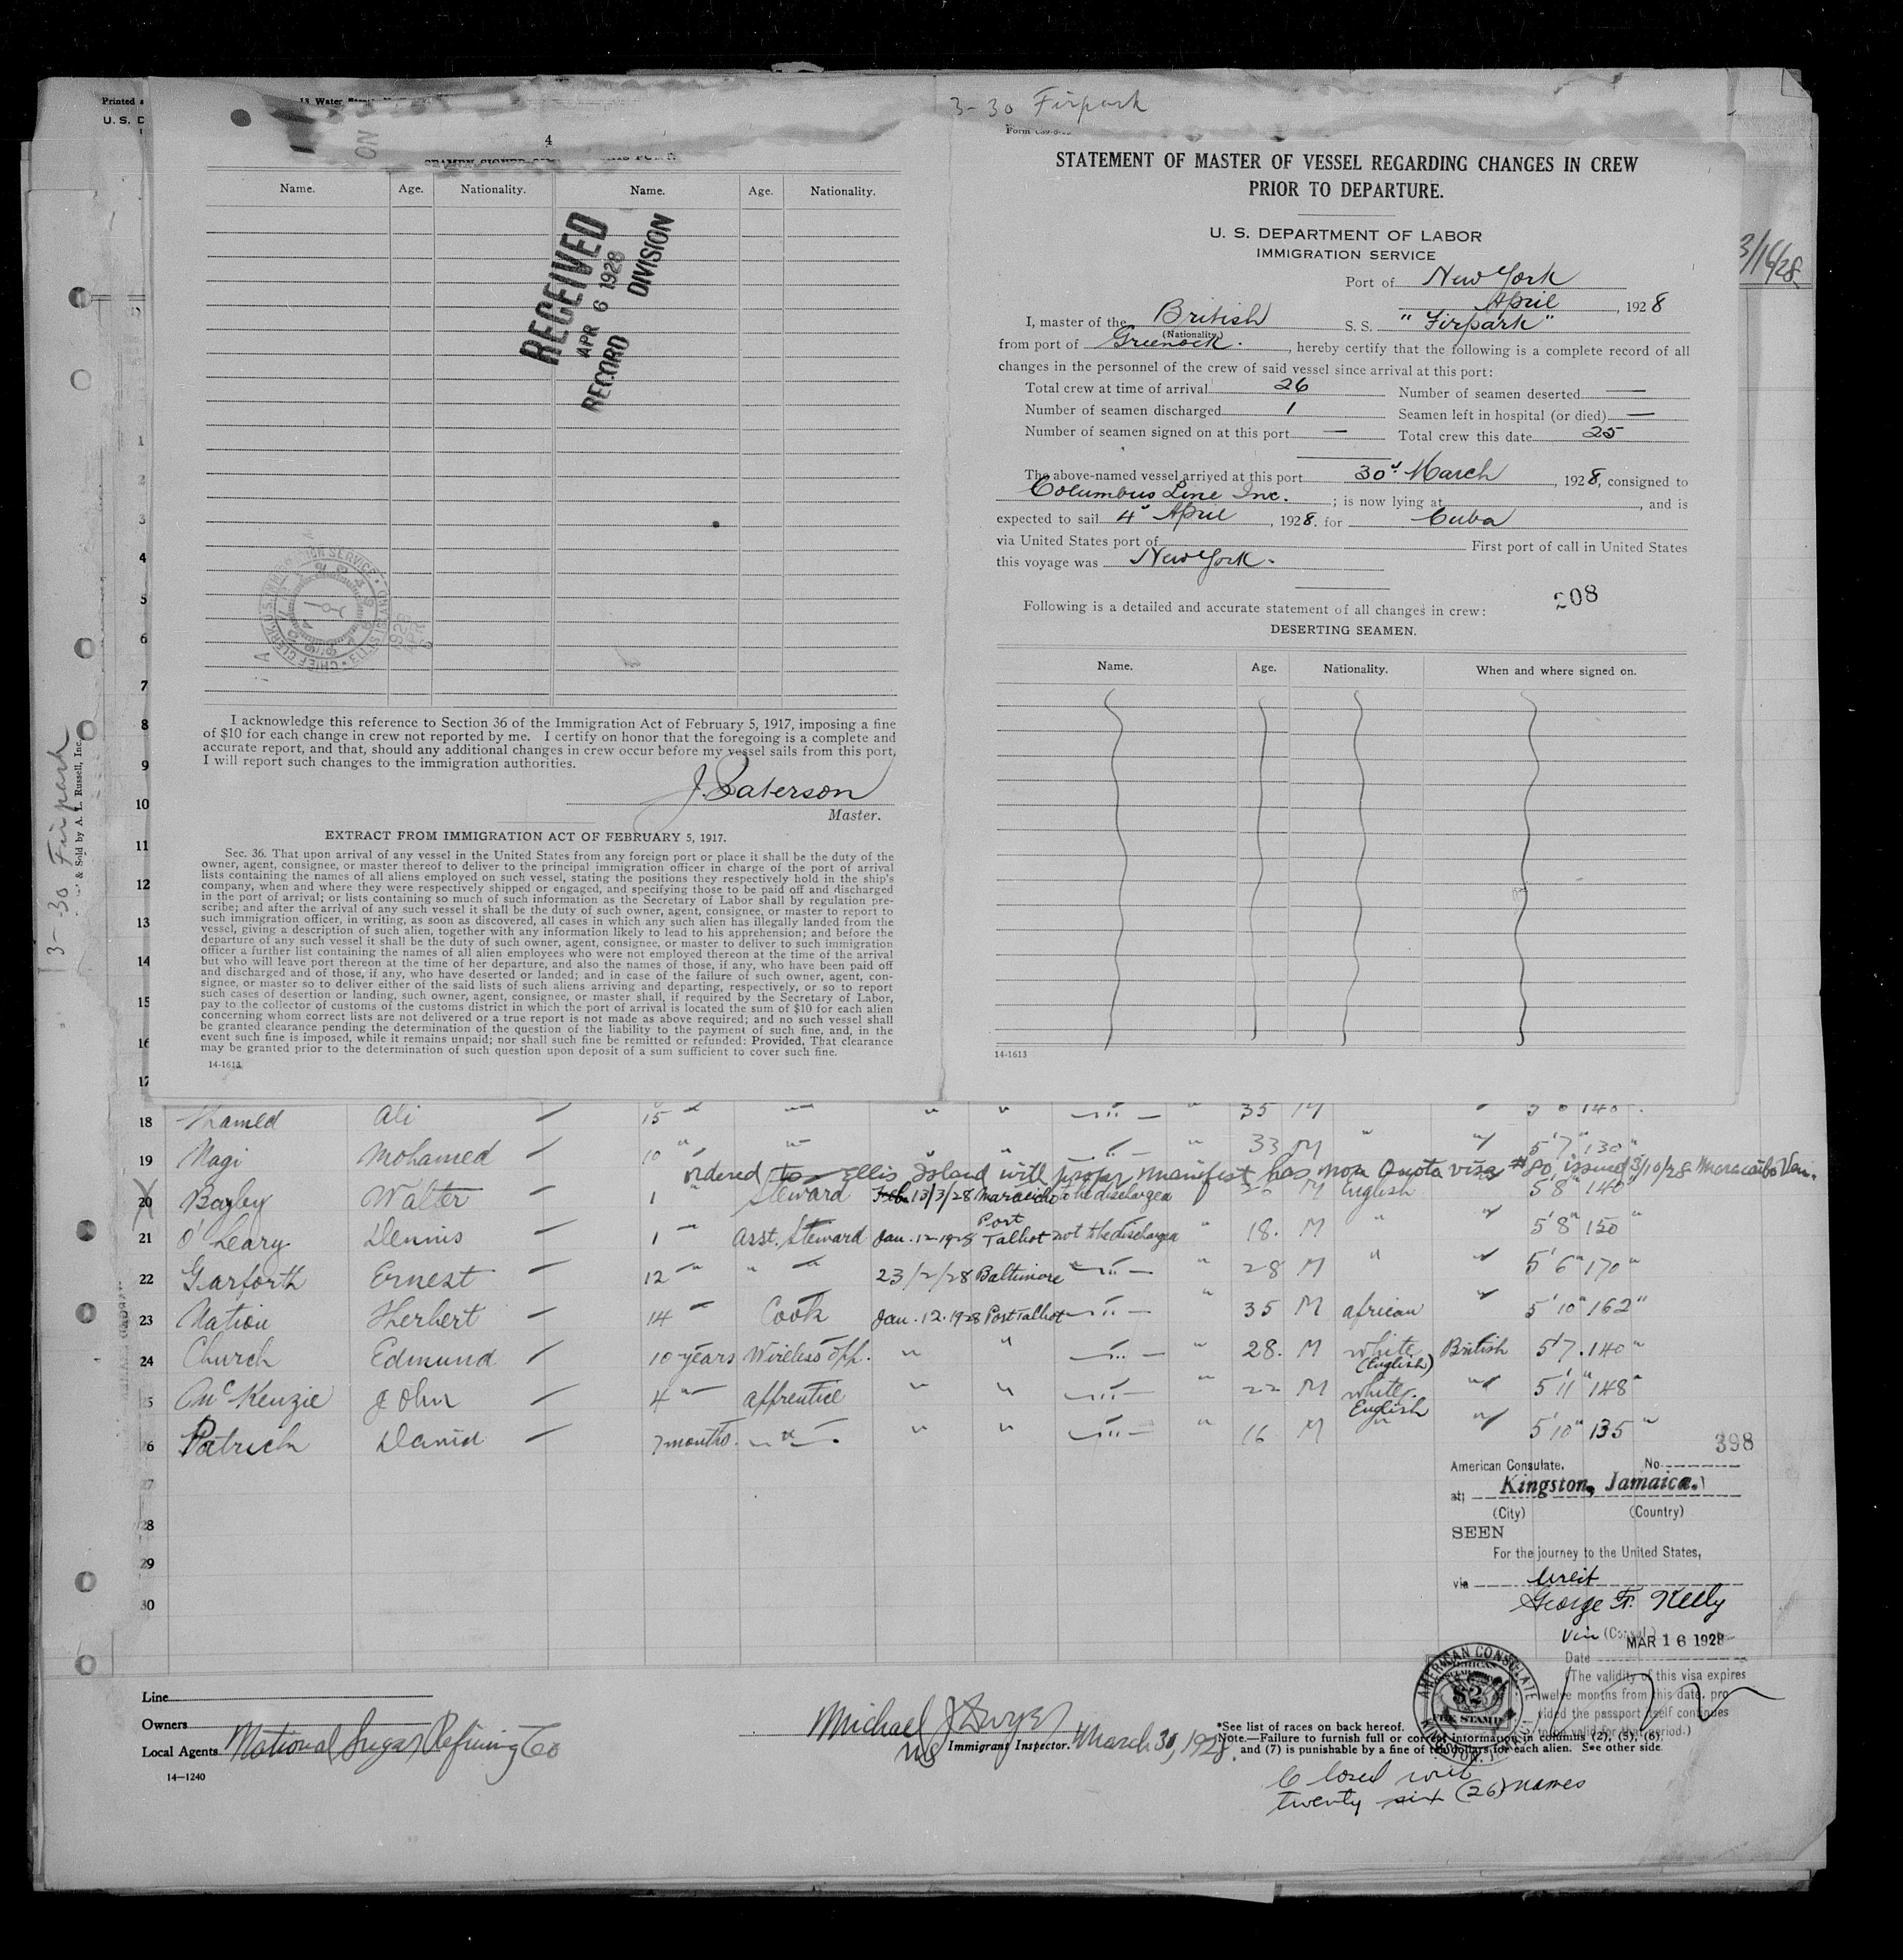 3-30 Firpark
Printed
U. S. D
13 Water
4
Name. Age. Nationality. Name. Age. Nationality.
RECEIVED
APR 6 1928
RECORD DIVISION
I acknowledge this reference to Section 36 of the Immigration Act of February 5, 1917, imposing a fine
of $10 for each change in crew not reported by me. I certify on honor that the foregoing is a complete and
accurate report, and that, should any additional changes in crew occur before my vessel sails from this port,
I will report such changes to the immigration authorities.
J. Paterson
Master.
EXTRACT FROM IMMIGRATION ACT OF FEBRUARY 5, 1917.
Sec. 36. That upon arrival of any vessel in the United States from any foreign port or place it shall be the duty of the
owner, agent, consignee, or master thereof to deliver to the principal immigration officer in charge of the port of arrival
lists containing the names of all aliens employed on such vessel, stating the positions they respectively hold in the ship's
company, when and where they were respectively shipped or engaged, and specifying those to be paid off and discharged
in the port of arrival; or lists containing so much of such information as the Secretary of Labor shall by regulation pre-
scribe; and after the arrival of any such vessel it shall be the duty of such owner, agent, consignee, or master to report to
such immigration officer, in writing, as soon as discovered, all cases in which any such alien has illegally landed from the
vessel, giving a description of such alien, together with any information likely to lead to his apprehension; and before the
departure of any such vessel it shall be the duty of such owner, agent, consignee, or master to deliver to such immigration
officer a further list containing the names of all alien employees who were not employed thereon at the time of the arrival
but who will leave port thereon at the time of her departure, and also the names of those, if any, who have been paid off
and discharged and of those, if any, who have deserted or landed; and in case of the failure of such owner, agent, con-
signee, or master so to deliver either of the said lists of such aliens arriving and departing, respectively, or so to report
such cases of desertion or landing, such owner, agent, consignee, or master shall, if required by the Secretary of Labor,
pay to the collector of customs of the customs district in which the port of arrival is located the sum of $10 for each alien
concerning whom correct lists are not delivered or a true report is not made as above required; and no such vessel shall
be granted clearance pending the determination of the question of the liability to the payment of such fine, and, in the
event such fine is imposed, while it remains unpaid; nor shall such fine be remitted or refunded: Provided, That clearance
may be granted prior to the determination of such question upon deposit of a sum sufficient to cover such fine.
14-1613
3-30 Firpark
& Sold by A. L. Russell, Inc.
STATEMENT OF MASTER OF VESSEL REGARDING CHANGES IN CREW
PRIOR TO DEPARTURE.
U. S. DEPARTMENT OF LABOR
IMMIGRATION SERVICE
3/16/28
Port of New York
April , 1928
I, master of the British S. S. "Firpark"
(Nationality)
from port of Greenock. , hereby certify that the following is a complete record of all
changes in the personnel of the crew of said vessel since arrival at this port:
Total crew at time of arrival 26 Number of seamen deserted —
Number of seamen discharged 1 Seamen left in hospital (or died) —
Number of seamen signed on at this port — Total crew this date 25
The above-named vessel arrived at this port 30" March , 1928, consigned to
Columbus Line Inc. ; is now lying at , and is
expected to sail 4" April , 1928. for Cuba
via United States port of First port of call in United States
this voyage was New York.
208
Following is a detailed and accurate statement of all changes in crew:
DESERTING SEAMEN.
Name. Age. Nationality. When and where signed on.
14-1613
1
2
3
4
5
6
7
8
9
10
11
12
13
14
15
16
17
18 Hamed Ali — 15 " " " " 35 M " 5'6" 140
19 Nagi Mohamed — 10 " " " " 33 M " " 5'7" 130"
ordered to Ellis Island with proper manifest has non Quota visa #80 issued 3/10/28 Maracaibo Ven.
20 Bayley Walter 1 " Steward 13/3/28 Maracaibo To be discharged M English 5'8" 140"
21 O'Leary Dennis — 1 " Asst. Steward Jan. 12. 1928 Port Talbot not to be discharged " 18. M " " 5'8" 150 "
22 Garforth Ernest — 12 " " " 23/2/28 Baltimore " " 28 M " " 5'6" 170 "
23 Nation Herbert — 14 " Cook Jan. 12. 1928 Port Talbot " " 35 M african " 5'10" 162"
24 Church Edmund — 10 years Wireless opp. " " " " 28. M white (English) British 5'7. 140 "
25 McKenzie John — 4 " apprentice " " " " 22 M white. English " 5'11" 148"
26 Patrick David — 7 months. " " " " " 16 M " " 5'10" 135 "
27
28
29
30
398
American Consulate. No
at Kingston, Jamaica.
(City) (Country)
SEEN
For the journey to the United States,
via
George F. Kelly
Vice (Consul.)
MAR 16 1928
Date
(The validity of this visa expires
twelve months from this date, pro
vided the passport itself continues
to be valid for that period.)
AMERICAN CONSULATE
KINGSTON, JAMAICA
$2
FEE STAMP
Line
Owners
Local Agents National Sugar Refining Co
14—1240
Michael J Dwyer
Immigrant Inspector. March 30, 1928.
*See list of races on back hereof.
Note.—Failure to furnish full or correct information in columns (2), (5), (6),
and (7) is punishable by a fine of ten dollars for each alien. See other side.
Closed with
twenty six (26) names